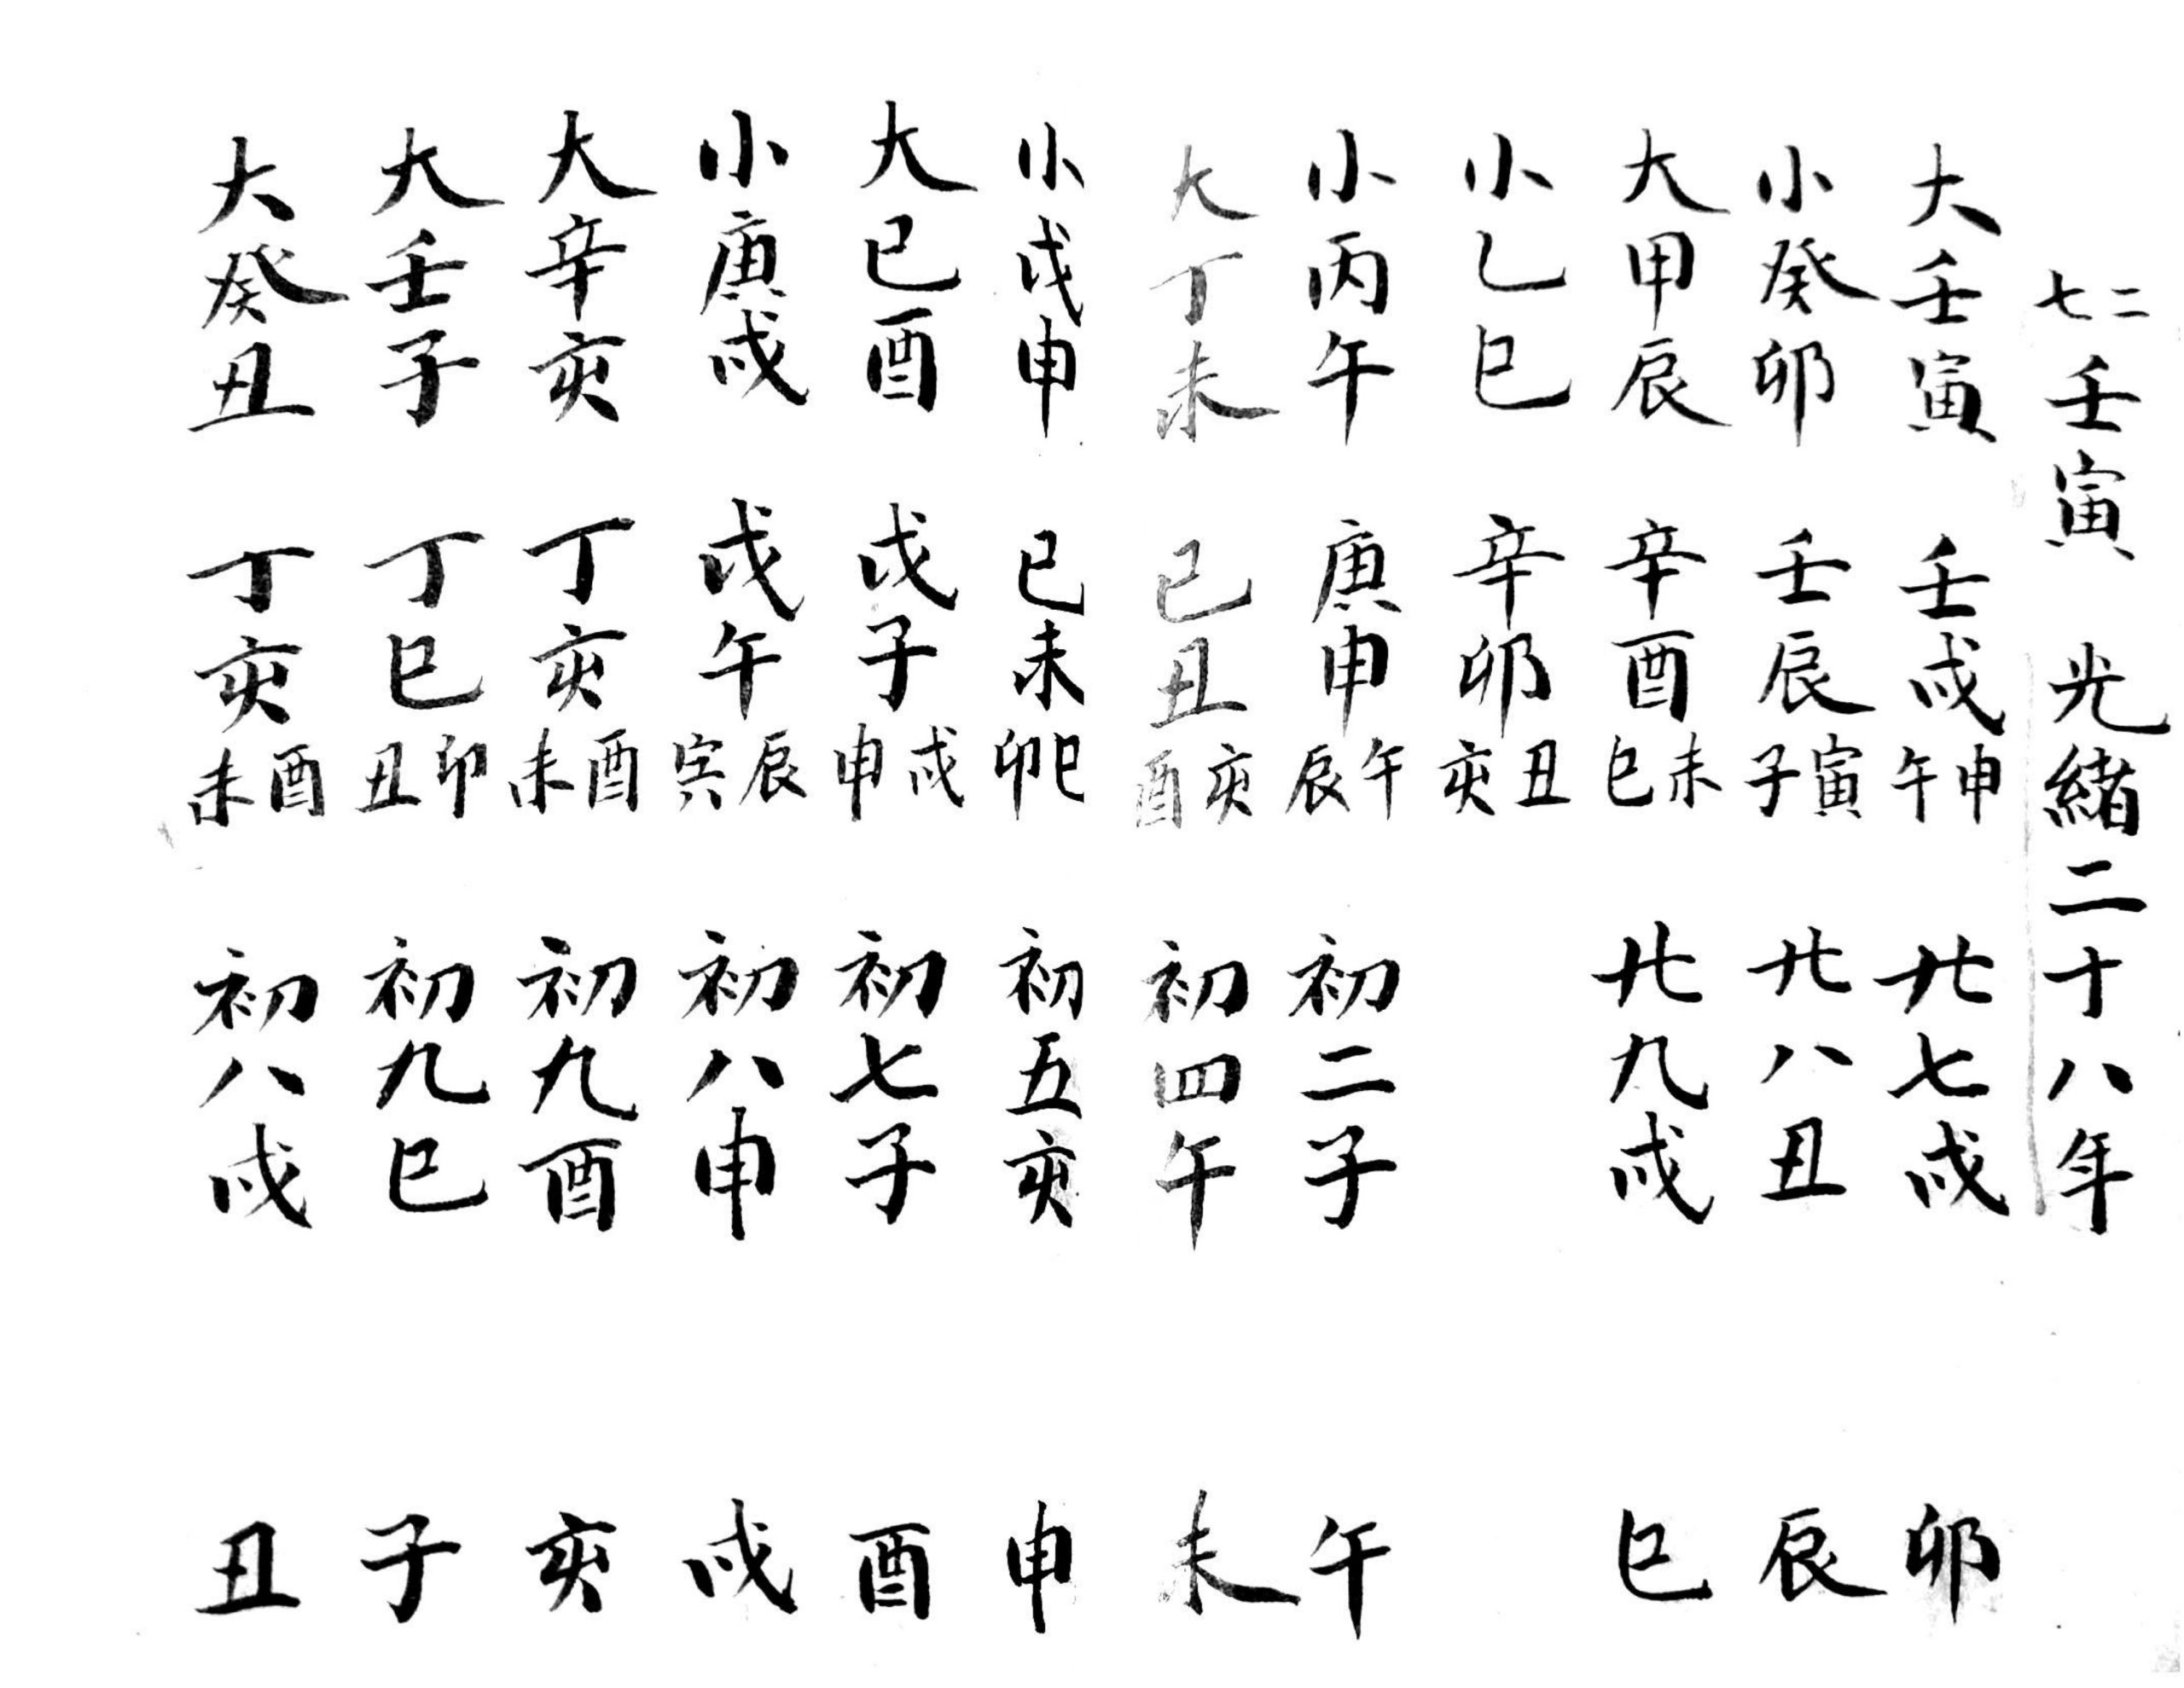 二七壬寅 光緒二十八年
大壬寅 壬戌午申 廿七戌 卯
小癸卯 壬辰子寅 廿八丑 辰
大甲辰 辛酉巳未 廿九戌 巳
小乙巳 辛卯亥丑
小丙午 庚申辰午 初二子 午
大丁未 己丑酉亥 初四午 未
小戊申 己未卯巳 初五亥 申
大己酉 戊子申戌 初七子 酉
小庚戌 戊午寅辰 初八申 戌
大辛亥 丁亥未酉 初九酉 亥
大壬子 丁巳丑卯 初九巳 子
大癸丑 丁亥未酉 初八戌 丑